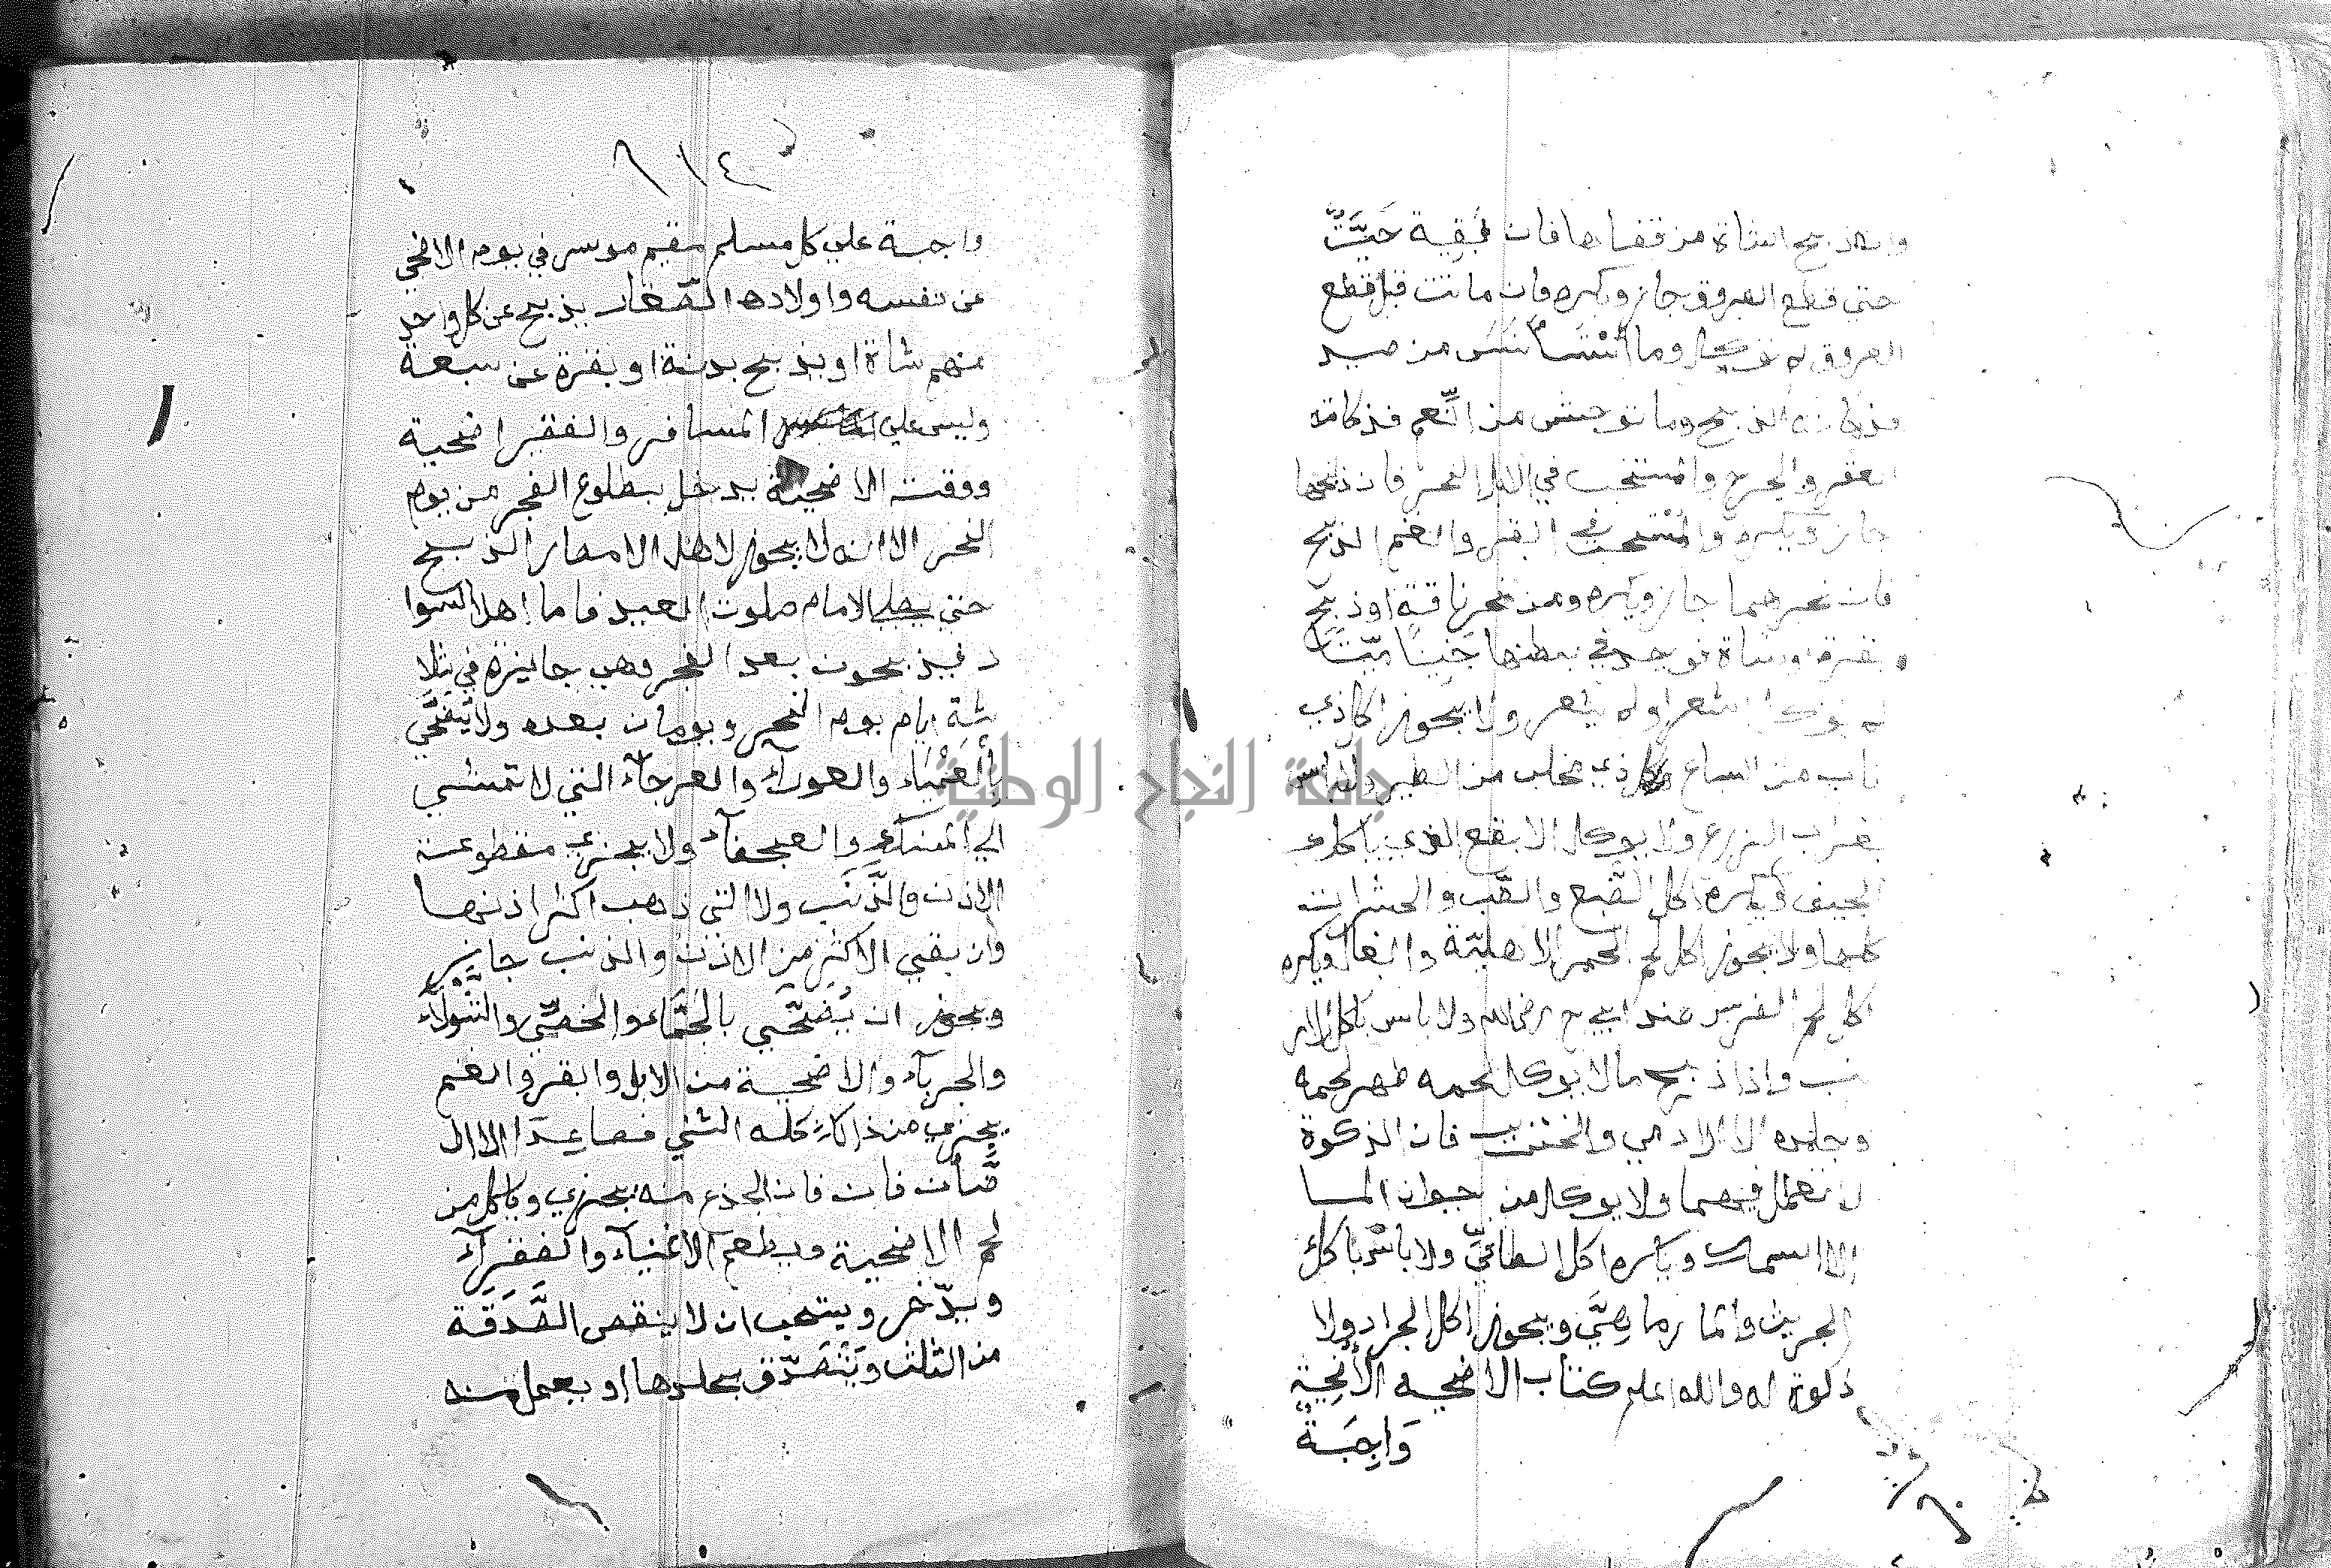 وان ذبح الشاة من قفاها فان بقية حيت
حتي قطع العروق جاز ويكره فان ماتت قبل قطع
العروق لم توكل وما أنشأنس من صيد
فذكاته الذبح وما توحش من النعم فذكاته
العقر والجرح والمستحب في الابل النحر فان ذبحها
جاز ويكره والمستحب في البقر والغنم الذبح
فان نحرهما جاز ويكره ومن نحر ناقة او ذبح
بقرة او شاة فوجد في بطنها جنينا ميتا
لم يوكل اشعر او لم يشعر ولا يجوز اكل ذي
ناب من السباع وكل ذي مخلب من الطير ولا باس
بغراب الزرع ولا يوكل الابقع الذي ياكل
الجيف ويكره اكل الضبع والضب والحشرات
كلها ولا يجوز اكل لحم الحمر الاهلية والبغال ويكره
اكل لحم الفرس عند ابي ح رضي الله ولا باس باكل الار
نب واذا ذبح مالا يوكل لحمه طهر لحمه
وجلده الا الادمي والخنزير فان الذكوة
لا تعمل فيهما ولا يوكل من حيوان الما
الا السمك ويكره اكل الطافي ولا باس باكل
الجريث والمارماهي ويجوز اكل الجراد ولا
ذكوة له والله اعلم كتاب الاضحيه الاضحية
وَاجِبَةٌ
٦١٤
واجبة علي كل مسلم مقيم موسر في يوم الاضحي
عن نفسه واولاده الصغار يذبح عن كل واحد
منهم شاة او يذبح بدنة او بقرة عن سبعة
وليس علي المسافر والفقير اضحية
ووقت الاضحية يدخل بطلوع الفجر من يوم
النحر الا انه لا يجوز لاهل الامصار الذبح
حتي يصلي الامام صلوت العيد فاما اهل السوا
د فيذبحون بعد الفجر وهي جايزة في ثلا
ثة ايام يوم النحر ويومان بعده ولا يضحي
بالعمياء والعوراء والعرجاء التي لا تمشي
الي المنسك والعجفاء ولا يجزي مقطوعة
الاذن والذنب ولا التي ذهب اكثر اذنها
وان بقي الاكثر من الاذن والذنب جاز
ويجوز ان يضحي بالجماء والخصي والثولاء
والجرباء والاضحية من الابل والبقر والغنم
يجزي من ذالك كله الثني فصاعدا الا ال
ضأن فان فان الجذع منه يجزي وياكل من
لحم الاضحية ويطعم الاغنياء والفقراء
ويدّخر ويتحب ان لا ينقص الصَّدَقَة
من الثلث ويتصدّق بجلدها او يعمل منه
جامعة النجاح الوطنية